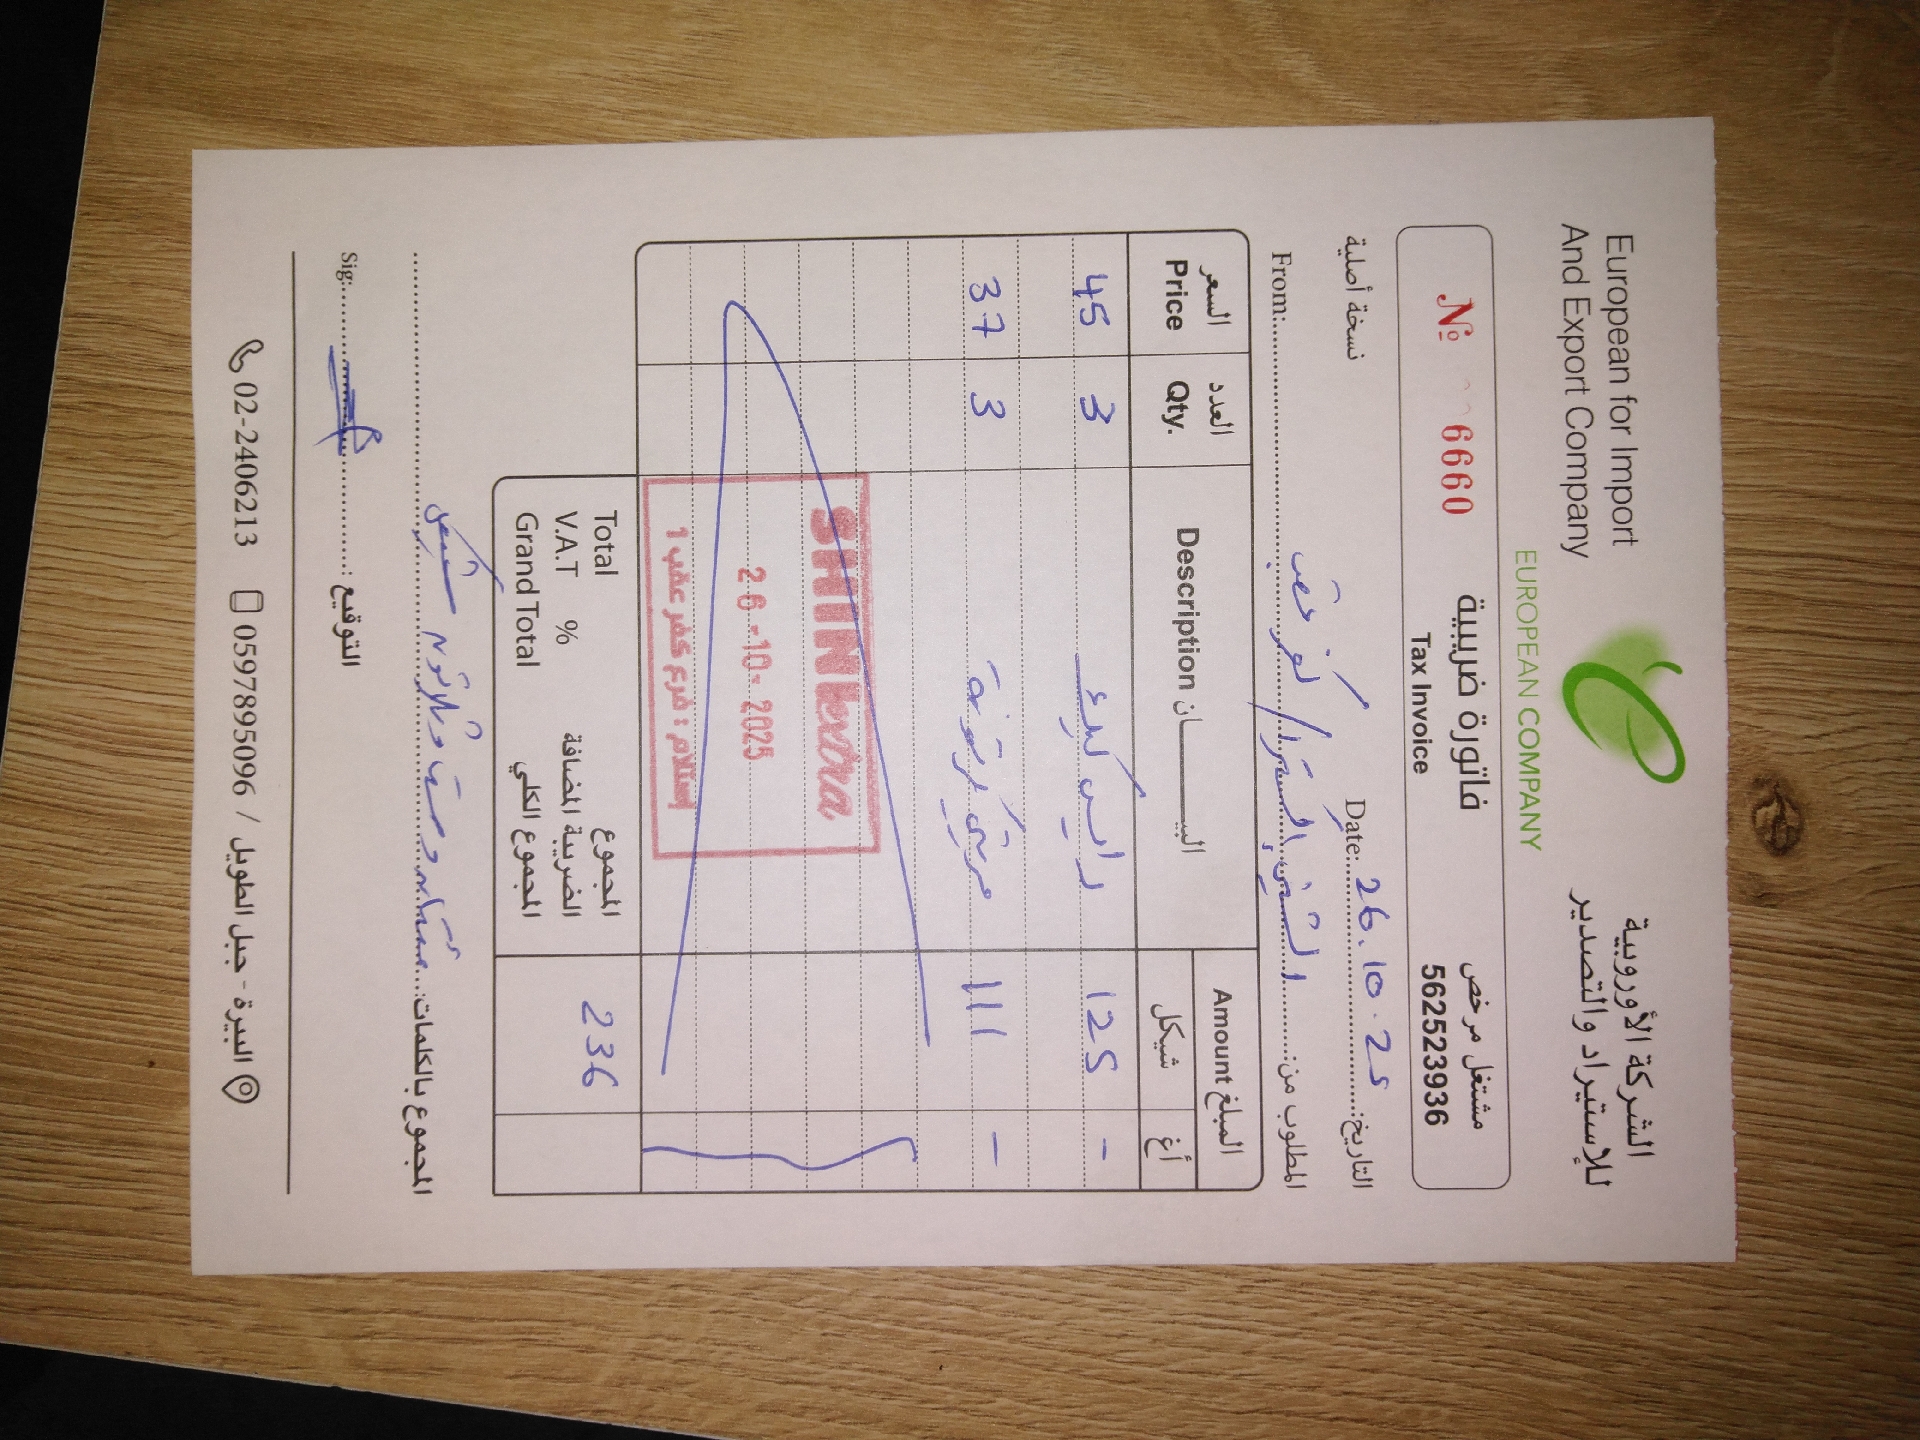 European for Import
And Export Company
الشركة الأوروبية
للإستيراد والتصدير
EUROPEAN COMPANY
№ 6660
فاتورة ضريبية
Tax Invoice
مشتغل مرخص
562523936
نسخة أصلية
Date: 26.10.25 التاريخ:
From: المطلوب من: الشني اكسترا / كفر عقب
السعر
Price
العدد
Qty.
Description البيــــــان
المبلغ Amount
شيكل
أغ
45 3 رايس كيك 125 -
37 3 111 -
SHINI extra
26-10-2025
إستلام : فرع كفر عقب 1
Total المجموع 236
V.A.T % الضريبة المضافة
Grand Total المجموع الكلي
المجموع بالكلمات: مئتان وستة وثلاثون شيكل
Sig: التوقيع:
02-2406213 0597895096 / البيرة - جبل الطويل